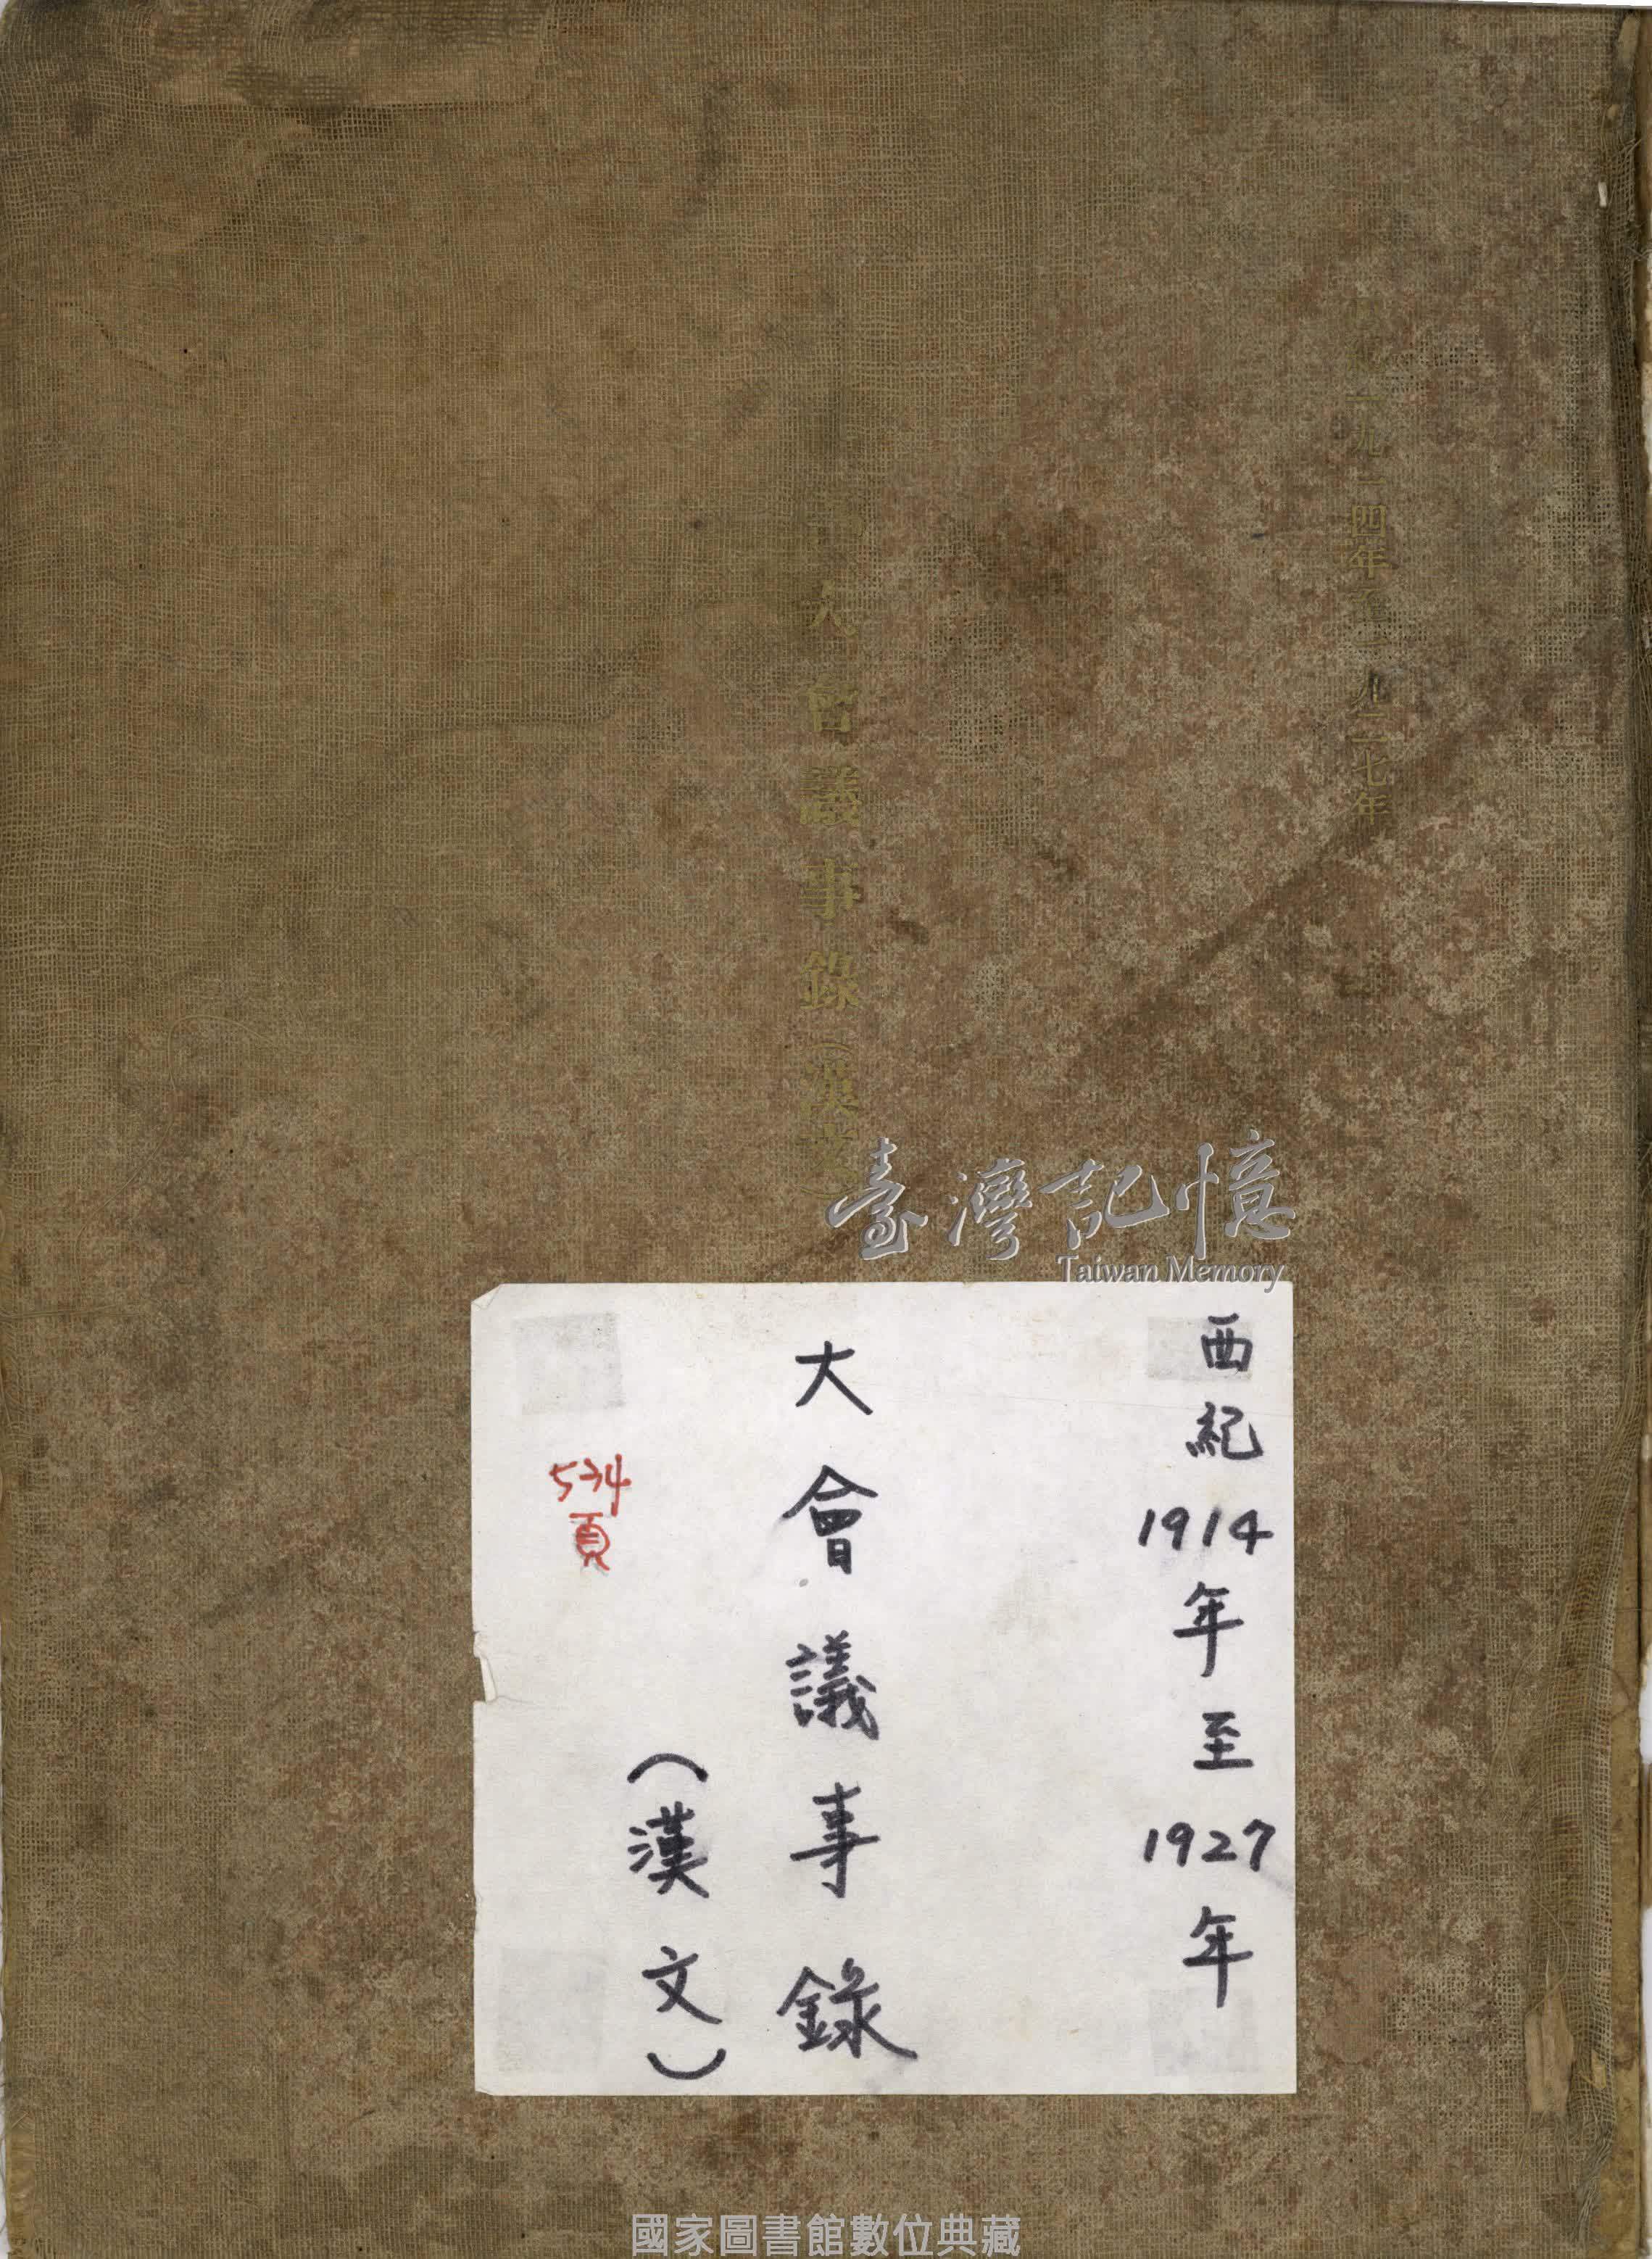 一九一四年至一九二七年
大會議事錄（漢文）
臺灣記憶
Taiwan Memory
西紀1914年至1927年
大會議事錄
（漢文）
534頁
國家圖書館數位典藏